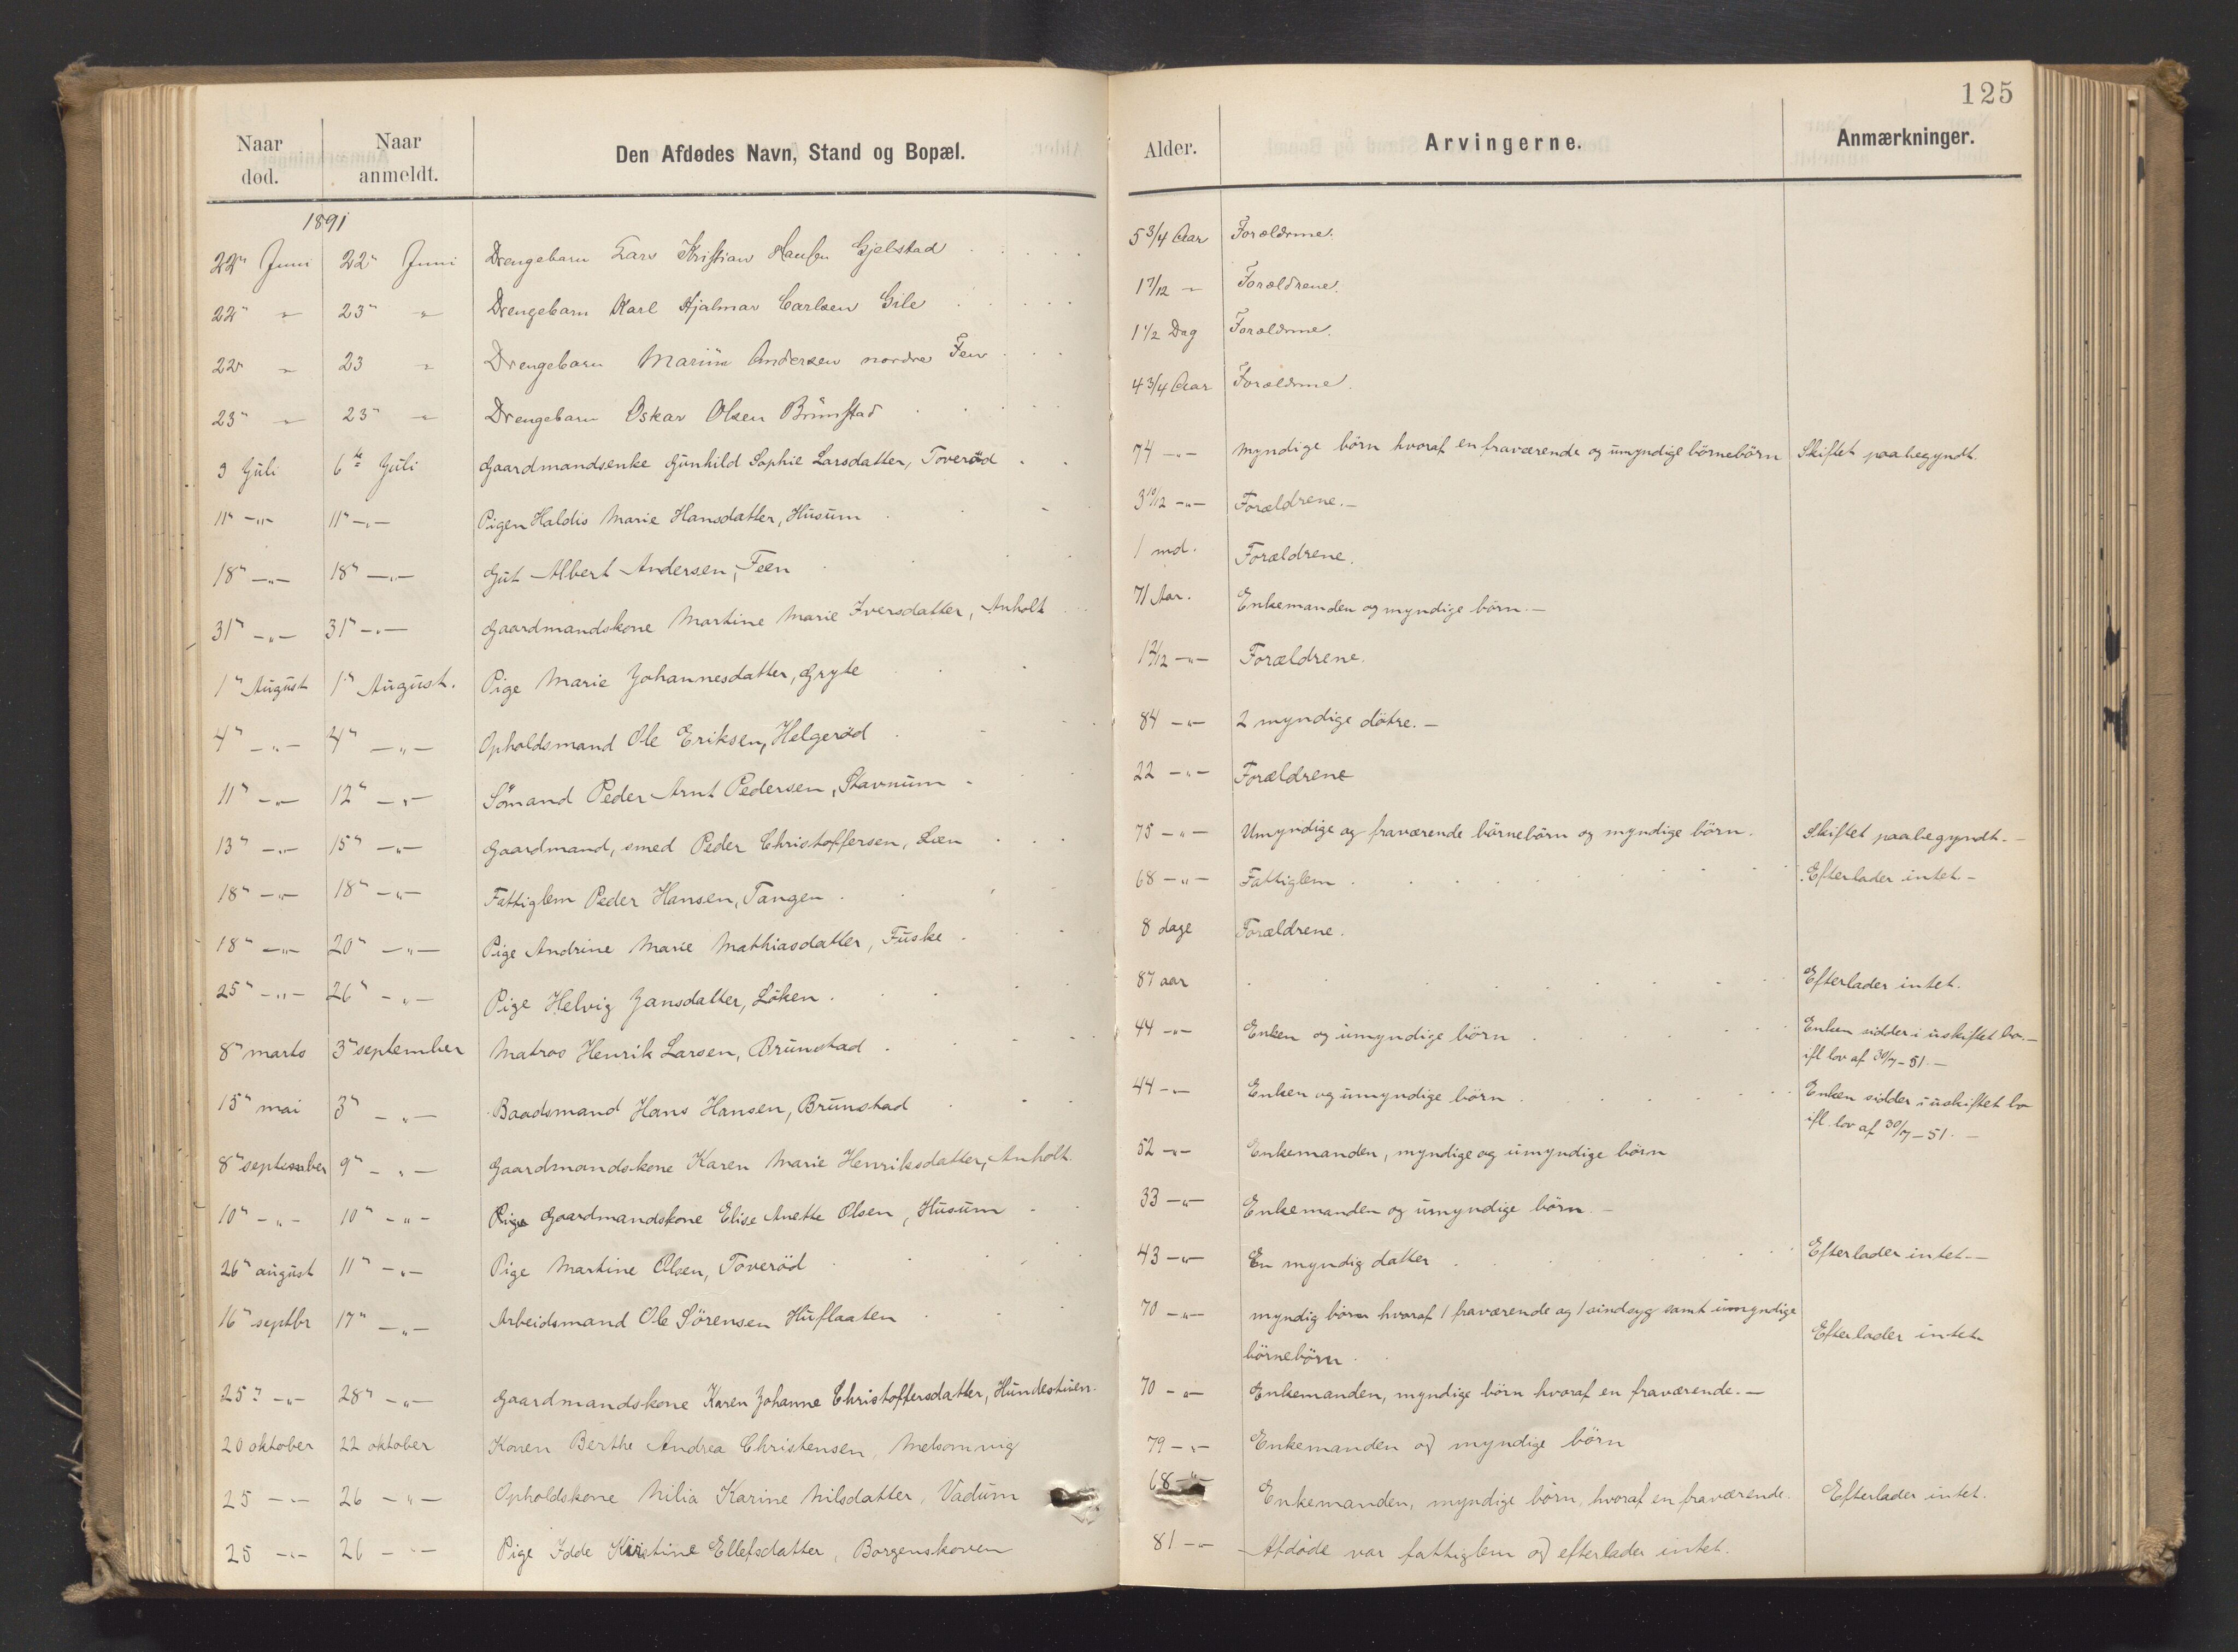 125
Naar død. Naar anmeldt. Den Afdødes Navn, Stand og Bopæl. Alder. Arvingerne. Anmærkninger.
1891
22" Juni 22" Juni Drengebarn Lars Kristian Hansen Gjelstad 5 3/4 Aar Forældrene.
22" " 23" " Drengebarn Karl Hjalmar Carlsen Gile 1 7/12 " Forældrene.
22" " 23 " Drengebarn Marius Andersen nordre Fen 1 1/2 Dag Forældrene.
23" " 23" " Drengebarn Oskar Olsen Brünstad 4 3/4 Aar Forældrene.
3 Juli 6te Juli Gaardmandsenke Gunhild Sophie Larsdatter, Toverød 74 -"- Myndige börn hvoraf en fraværende og umyndige börnebörn Skiftet paabegyndt.
11" -"- 11" -"- Pigen Haldis Marie Hansdatter, Husum 3 10/12 -"- Forældrene.-
18" -"- 18" -"- Gut Albert Andersen, Feen 1 md. Forældrene.
31" -"- 31" -"- Gaardmandskone Martine Marie Iversdatter, Anholt 71 Aar. Enkemanden og myndige börn.-
1" August 1" August. Pige Marie Johannesdatter, Gryte -"- Forældrene.
4" -"- 4" -"- Opholdsmand Ole Eriksen, Helgeröd 84 -"- 2 myndige dötre.-
11" -"- 12" -"- Sömand Peder Arnt Pedersen, Stavnum 22 -"- Forældrene
13" -"- 15" -"- Gaardmand, smed Peder Christoffersen, Læn 75 -"- Umyndige og fraværende börnebörn og myndige börn. Skiftet paabegyndt.-
18" -"- 18" -"- Fattiglem Peder Hansen, Tangen 68 -"- Fattiglem Efterlader intet-
18" -"- 20" -"- Pige Andrine Marie Mathiasdatter, Fuske 8 dage Forældrene.
25" -"- 26" -"- Pige Helvig Jansdatter, Löken. 87 aar Efterlader intet.
8" marts 3" september Matros Henrik Larsen, Brunstad 44 -"- Enken og umyndige börn Enken sidder i uskiftet bo.-
ifl lov af 30/7-51.-
15" mai 3" -"- Baadsmand Hans Hansen, Brunstad 44 -"- Enken og umyndige börn Enken sidder i uskiftet bo
ifl. lov af 30/7-51.-
8" september 9" -"- Gaardmandskone Karen Marie Henriksdatter, Anholt. 52 -"- Enkemanden, myndige og umyndige börn
10" -"- 10" -"- Pige Gaardmandskone Elise Anette Olsen, Husum 33 -"- Enkemanden og umyndige börn.-
26" august 11" -"- Pige Martine Olsen, Toveröd 43 -"- En myndig datter Efterlader intet.-
16" septbr 17" -"- Arbeidsmand Ole Sörensen Huflaaten 70 -"- myndig börn hvoraf 1 fraværende og 1 sindsyg samt umyndige
börnebörn. Efterlader intet.
25" -"- 28" -"- Gaardmandskone Karen Johanne Christoffersdatter, Hundestuen. 70 -"- Enkemanden, myndige börn hvoraf en fraværende.-
20 oktober 22 oktober Konen Berthe Andrea Christensen, Melsomvig 79 -"- Enkemanden og myndige börn
25 -"- 26 -"- Opholdskone Nilia Karine Nilsdatter, Vadum 68 -"- Enkemanden, myndige börn, hvoraf en fraværende. Efterlader intet.
25 -"- 26 -"- Pige Idde Kirstine Ellefsdatter, Borgenskoven 81 -"- Afdöde var fattiglem og efterlader intet.